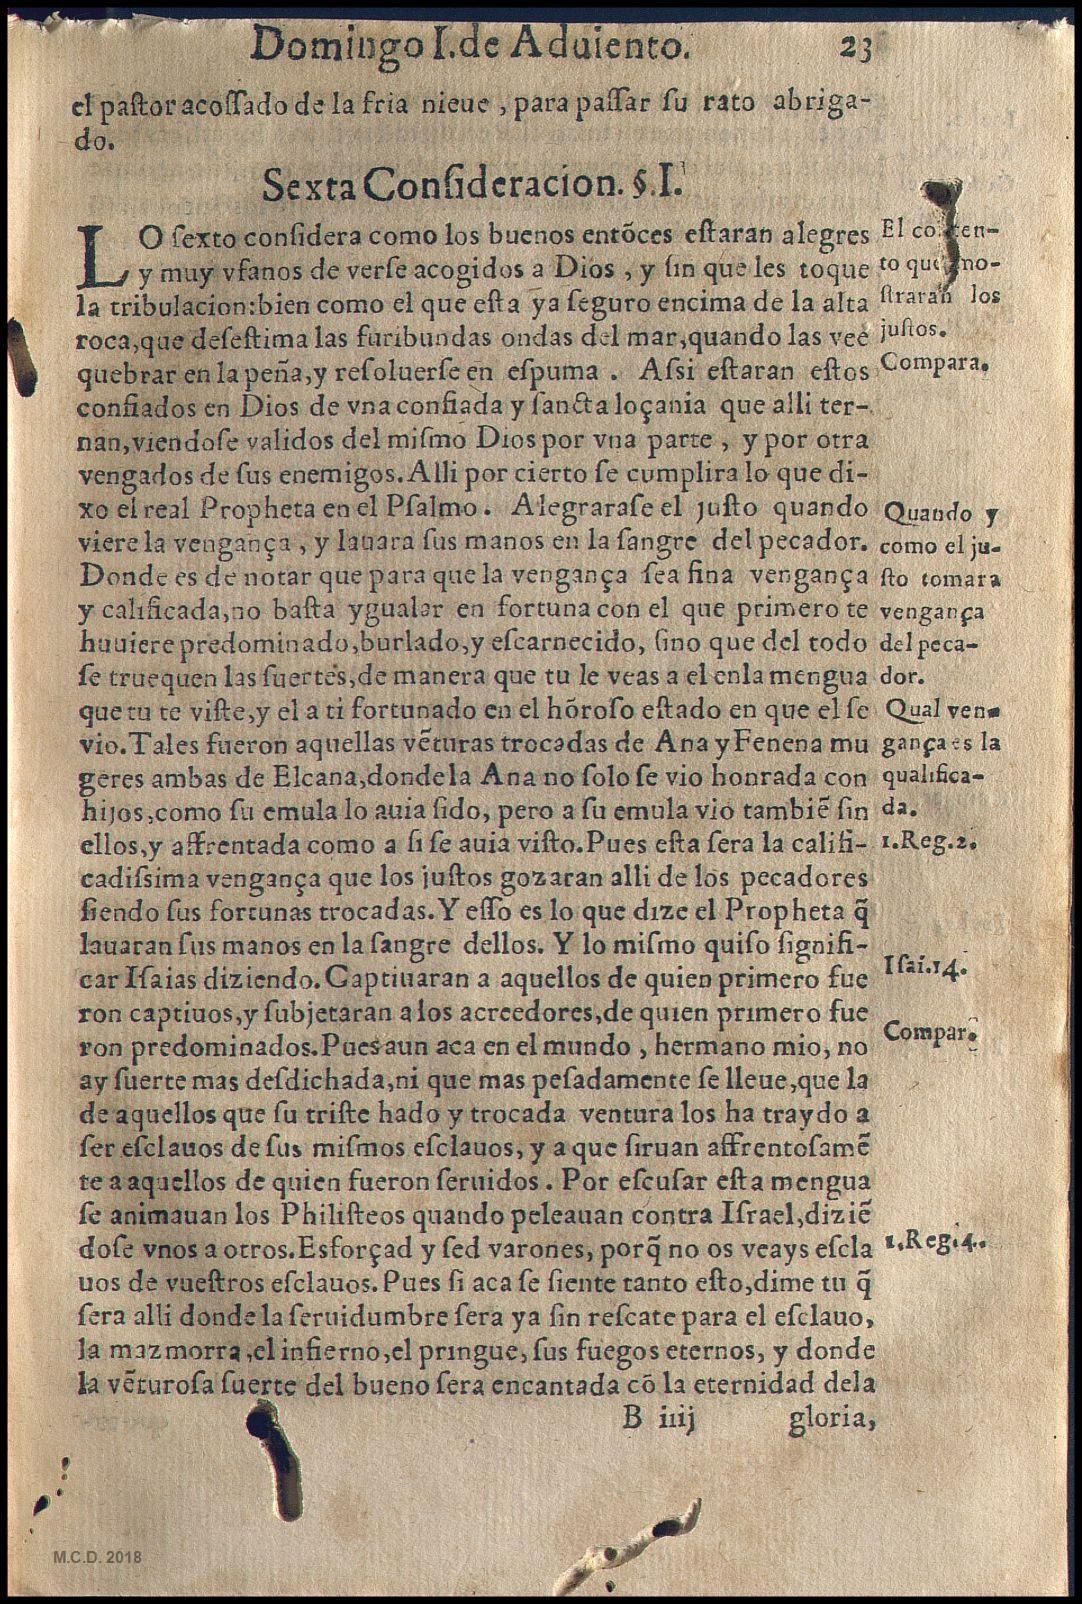 Domingo I. de Aduiento. 23
el paſtor acoſſado de la fria nieue, para paſſar ſu rato abriga-
do.
Sexta Conſideracion. §. I.
LO ſexto conſidera como los buenos entõces eſtaran alegres
y muy vfanos de verſe acogidos a Dios, y ſin que les toque
la tribulacion: bien como el que eſta ya ſeguro encima de la alta
roca, que deſeſtima las furibundas ondas del mar, quando las veé
quebrar en la peña, y reſoluerſe en eſpuma. Aſsi eſtaran eſtos
confiados en Dios de vna confiada y ſancta loçania que alli ter-
nan, viendoſe validos del miſmo Dios por vna parte, y por otra
vengados de ſus enemigos. Alli por cierto ſe cumplira lo que di-
xo el real Propheta en el Pſalmo. Alegraraſe el juſto quando
viere la vengança, y lauara ſus manos en la ſangre del pecador.
Donde es de notar que para que la vengança ſea fina vengança
y calificada, no baſta ygualar en fortuna con el que primero te
huuiere predominado, burlado, y eſcarnecido, ſino que del todo
ſe truequen las ſuertes, de manera que tu le veas a el en la mengua
que tu te viſte, y el a ti fortunado en el hõroſo eſtado en que el ſe
vio. Tales fueron aquellas vẽturas trocadas de Ana y Fenena mu
geres ambas de Elcana, donde la Ana no ſolo ſe vio honrada con
hijos, como ſu emula lo auia ſido, pero a ſu emula vio tambiẽ ſin
ellos, y affrentada como a ſi ſe auia viſto. Pues eſta ſera la califi-
cadiſsima vengança que los juſtos gozaran alli de los pecadores
ſiendo ſus fortunas trocadas. Y eſſo es lo que dize el Propheta q̃
lauaran ſus manos en la ſangre dellos. Y lo miſmo quiſo ſignifi-
car Iſaias diziendo. Captiuaran a aquellos de quien primero fue
ron captiuos, y ſubjetaran a los acreedores, de quien primero fue
ron predominados. Pues aun aca en el mundo, hermano mio, no
ay ſuerte mas deſdichada, ni que mas peſadamente ſe lleue, que la
de aquellos que ſu triſte hado y trocada ventura los ha traydo a
ſer eſclauos de ſus miſmos eſclauos, y a que ſiruan affrentoſamẽ
te a aquellos de quien fueron ſeruidos. Por eſcuſar eſta mengua
ſe animauan los Philiſteos quando peleauan contra Iſrael, diziẽ
doſe vnos a otros. Esforçad y ſed varones, porq̃ no os veays eſcla
uos de vueſtros eſclauos. Pues ſi aca ſe ſiente tanto eſto, dime tu q̃
ſera alli donde la ſeruidumbre ſera ya ſin reſcate para el eſclauo,
la mazmorra, el infierno, el pringue, ſus fuegos eternos, y donde
la vẽturoſa ſuerte del bueno ſera encantada cõ la eternidad dela
B iiij gloria,
El conten-
to que mo-
ſtraran los
juſtos.
Compara.
Quando y
como el ju-
ſto tomara
vengança
del peca-
dor.
Qual ven-
gança es la
qualifica-
da.
1. Reg. 2.
Iſai. 14.
Compar.
1. Reg. 4.
M.C.D. 2018